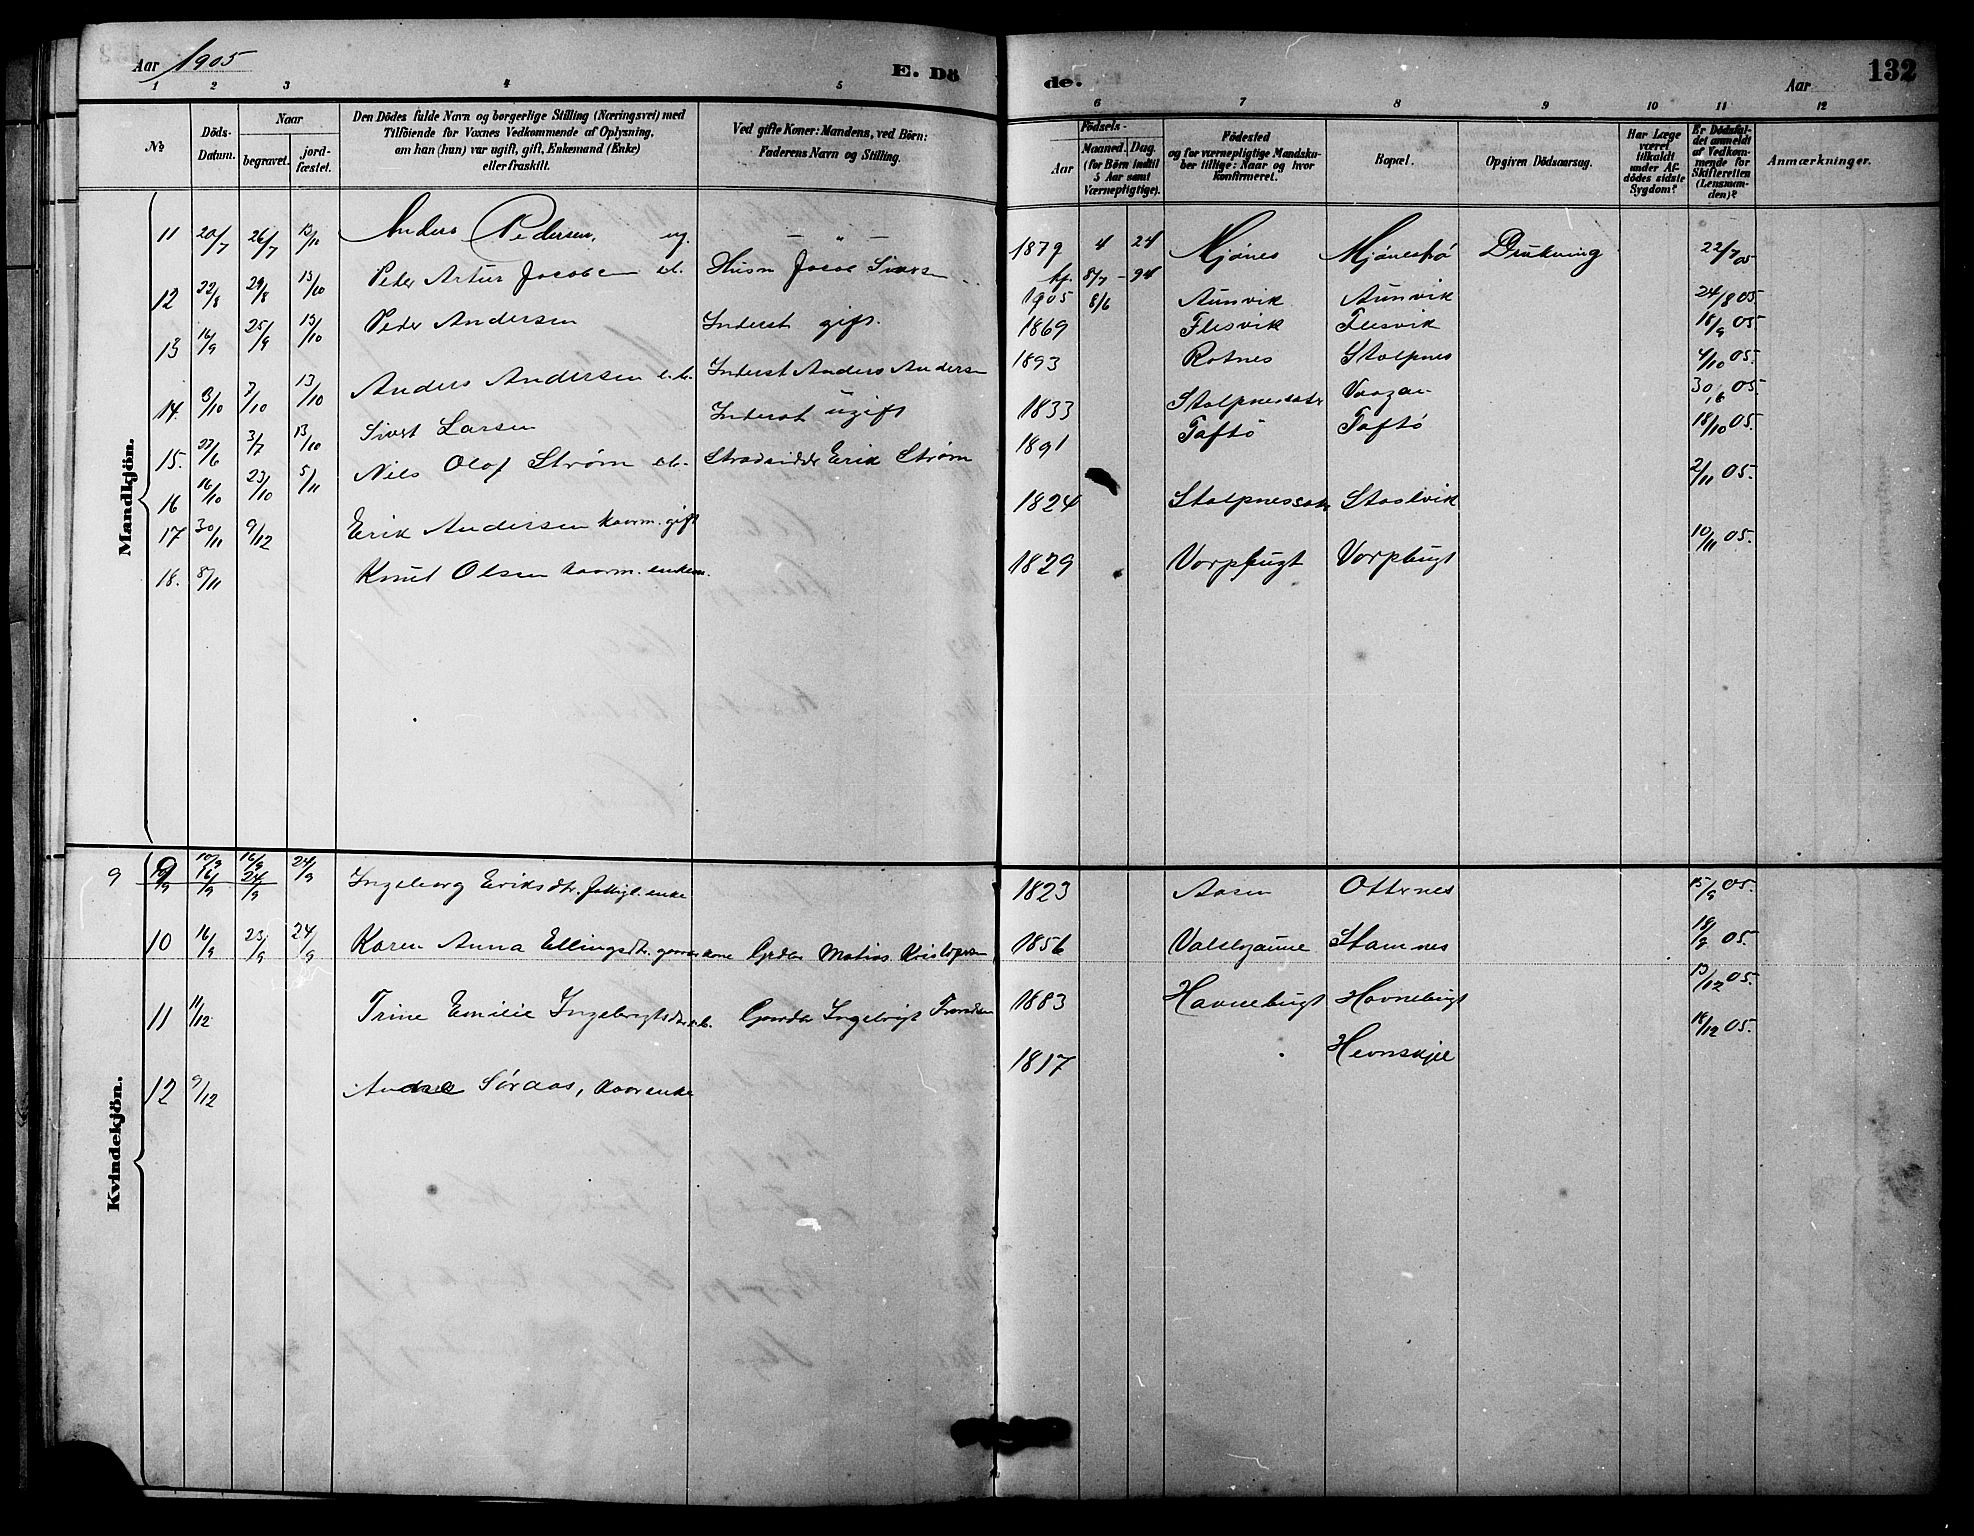 Aar 1905
E. Dö
de.
Aar
132
1 2 3 4 5 6 7 8 9 10 11 12
No
Döds-Datum.
Naar
begravet.
jordfæstet.
Den Dödes fulde Navn og borgerlige Stilling (Næringsvei) med
Tilföiende for Voxnes Vedkommende af Oplysning,
om han (hun) var ugift, gift, Enkemand (Enke)
eller fraskilt.
Ved gifte Koner: Mandens, ved Börn:
Faderens Navn og Stilling.
Födsels-
Aar
Maaned. Dag.
(for Börn indtil
5 Aar samt
Værnepligtige).
Födested
og for værnepligtige Mandskaber tillige: Naar og hvor
konfirmeret.
Bopæl.
Opgiven Dödsaarsag.
Har Læge
været
tilkaldt
under Afdödes sidste
Sygdom?
Er Dödsfaldet anmeldt
af Vedkommende for
Skifteretten
(Lensmanden)?
Anmærkninger.
Mandkjön.
11 20/7 26/7 13/10 Anders Pedersen, ug. — 1879 4 24 Mjönes Mjönesbö Drukning 22/7 05
kf. 8/7 - 94
12 22/8 29/8 13/10 Peder Artur Jacobsen Husm Jacob Sivers 1905 8/6 Aunvik Aunvik 24/8 05
13 16/9 25/9 13/10 Peder Andersen Inderst gift. 1869 Flesvik Flesvik 18/9 05
14. 3/10 7/10 13/10 Anders Andersen Inderst Anders Andersen 1893 Rotnes Stolpnes 4/10 05.
15. 27/6 3/7 13/10 Sivert Larsen Inderst ugift 1833 Stolpnessæter Vaagan 30/6 05.
16 16/10 23/10 5/11 Nils Olof Strøm Strandsidder Erik Strøm 1891 Taftö Taftö 18/10 05.
17 30/11 9/12 Erik Andersen kaarm. gift 1824 Stolpnessæter Staalvik 2/11 05.
18. 8/11 Knut Olsen kaarm. enkem. 1829 Vorpbugt Vorpbugt 10/11 05.
Kvindekjön.
9 10/9 16/9 24/9 Ingeborg Eriksdtr. fattigl. enke 1823 Aasen Otternes 15/9 05.
10 16/9 23/9 24/9 Karen Anna Ellingsdtr. gaardkone Grdbr Matias Kristofersen 1856 Valslagaune Stamnes 18/9 05.
11 11/12 Trine Emilie Ingebrigtsdtr Gaardbr Ingebrigt Trondsen 1883 Havnebugt Havnebugt 13/12 05.
12 9/12 Søraas, kaarenke 1817 Hevnskjel 18/12 05.